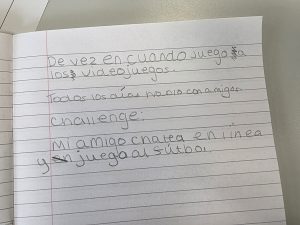 De vez en cuando juego a
los videojuegos.
Todos los días con amigos.
challenge:
Mi amigo chatea en línea
y juega al fútbol.